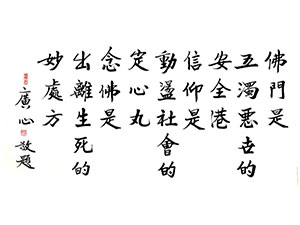 佛門是
五濁惡世的
安全港
信仰是
動盪社會的
定心丸
念佛是
出離生死的
妙處方
廣心敬題